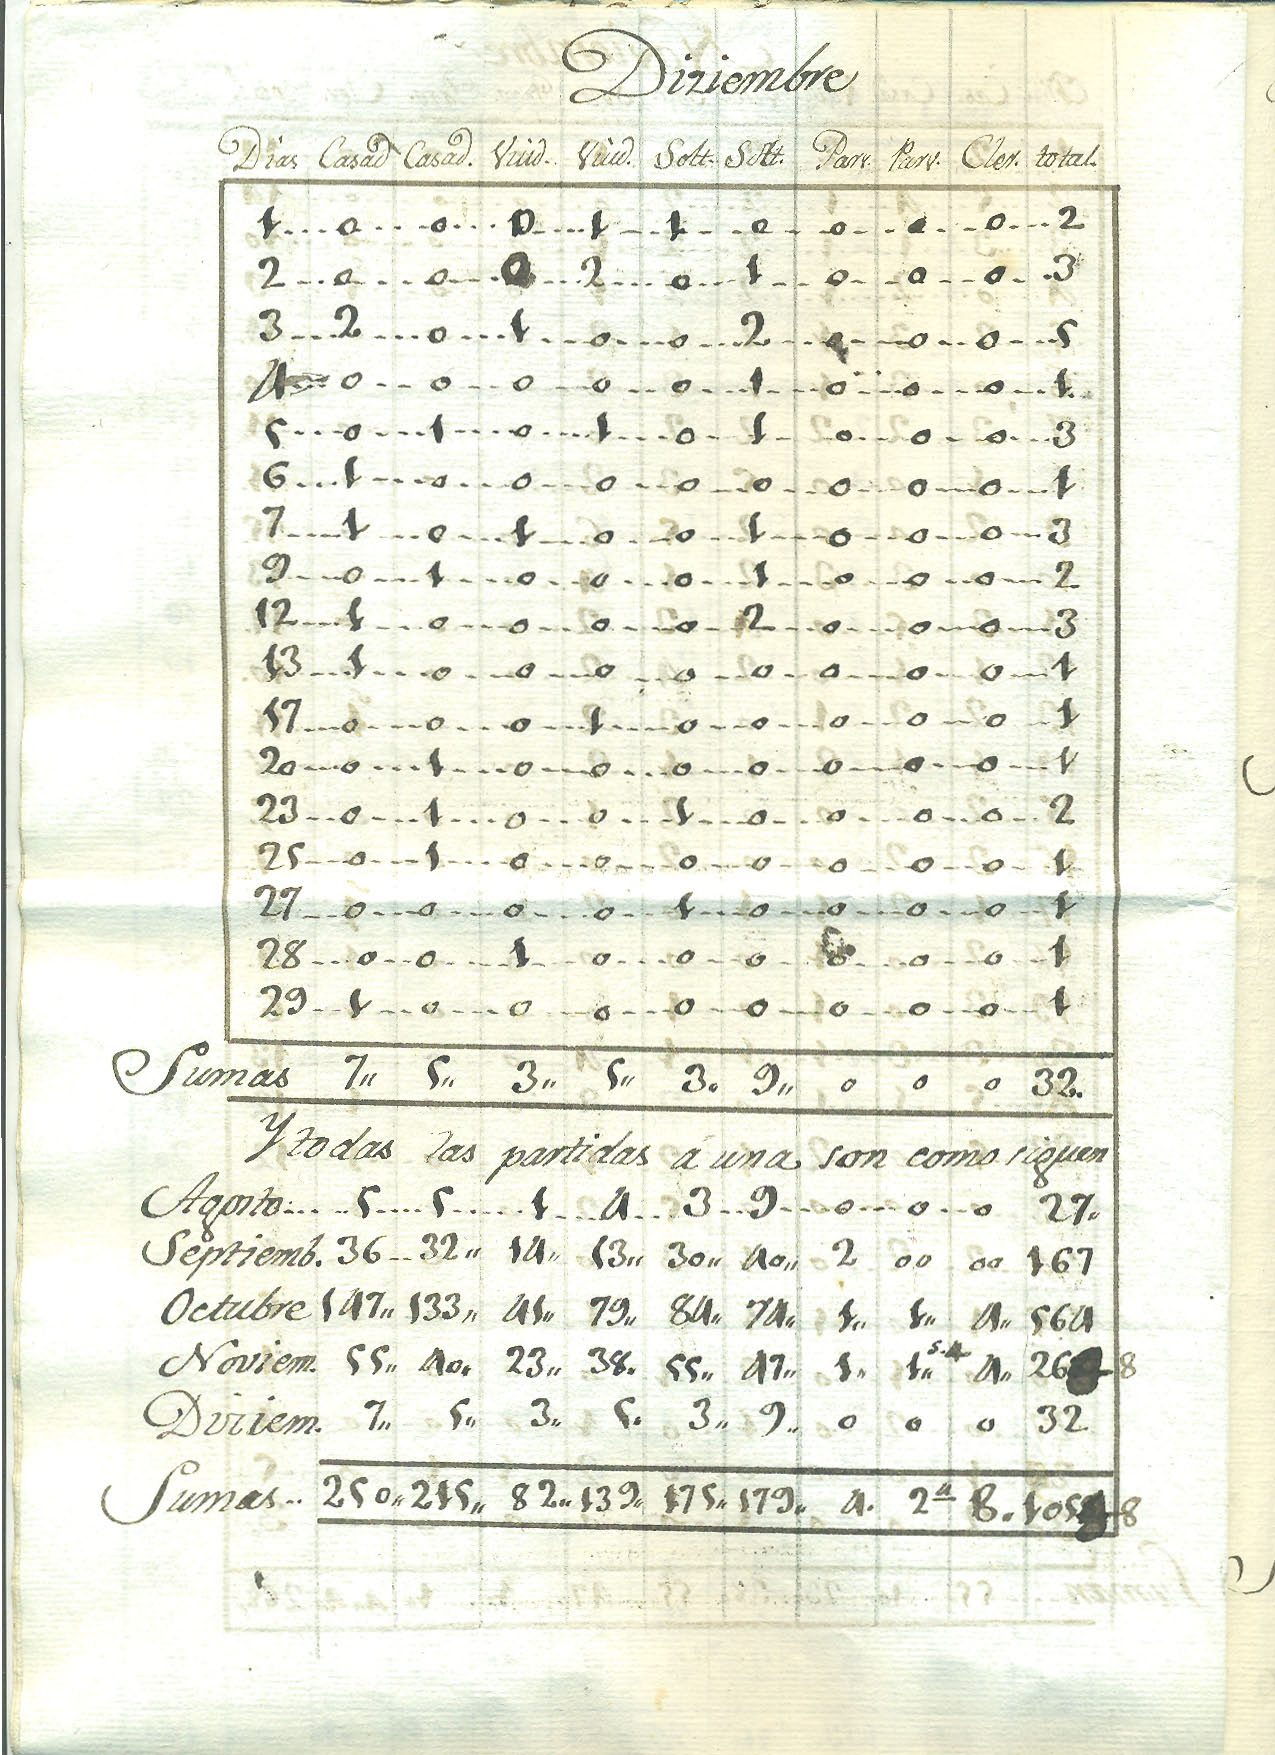 Diziembre
Dias Casad Casad. Viud. Viud. Solt. Solt. Parv. Parv. Cler. total.
1 0 0 0 1 1 0 0 0 0 2
2 0 0 0 2 0 1 0 0 0 3
3 2 0 1 0 0 2 0 0 0 5
4 0 0 0 0 0 1 0 0 0 1
5 0 1 0 1 0 1 0 0 0 3
6 1 0 0 0 0 0 0 0 0 1
7 1 0 1 0 0 1 0 0 0 3
9 0 1 0 0 0 1 0 0 0 2
12 1 0 0 0 0 2 0 0 0 3
13 1 0 0 0 0 0 0 0 0 1
17 0 0 0 1 0 0 0 0 0 1
20 0 1 0 0 0 0 0 0 0 1
23 0 1 0 0 1 0 0 0 0 2
25 0 1 0 0 0 0 0 0 0 1
27 0 0 0 0 1 0 0 0 0 1
28 0 0 1 0 0 0 0 0 0 1
29 1 0 0 0 0 0 0 0 0 1
Sumas 7 5 3 5 3 9 0 0 0 32.
Y todas las partidas á una son como siguen
Agosto 5 5 1 4 3 9 0 0 0 27
Septiemb. 36 32 14 13 30 40 2 00 00 167
Octubre 147 133 41 79 84 74 1 1 4 564
Noviem. 55 40 23 38 55 47 1 1 4 26 8
Diziem. 7 5 3 5 3 9 0 0 0 32
Sumas 250 215 82 139 175 179 4. 2 8. 105 8